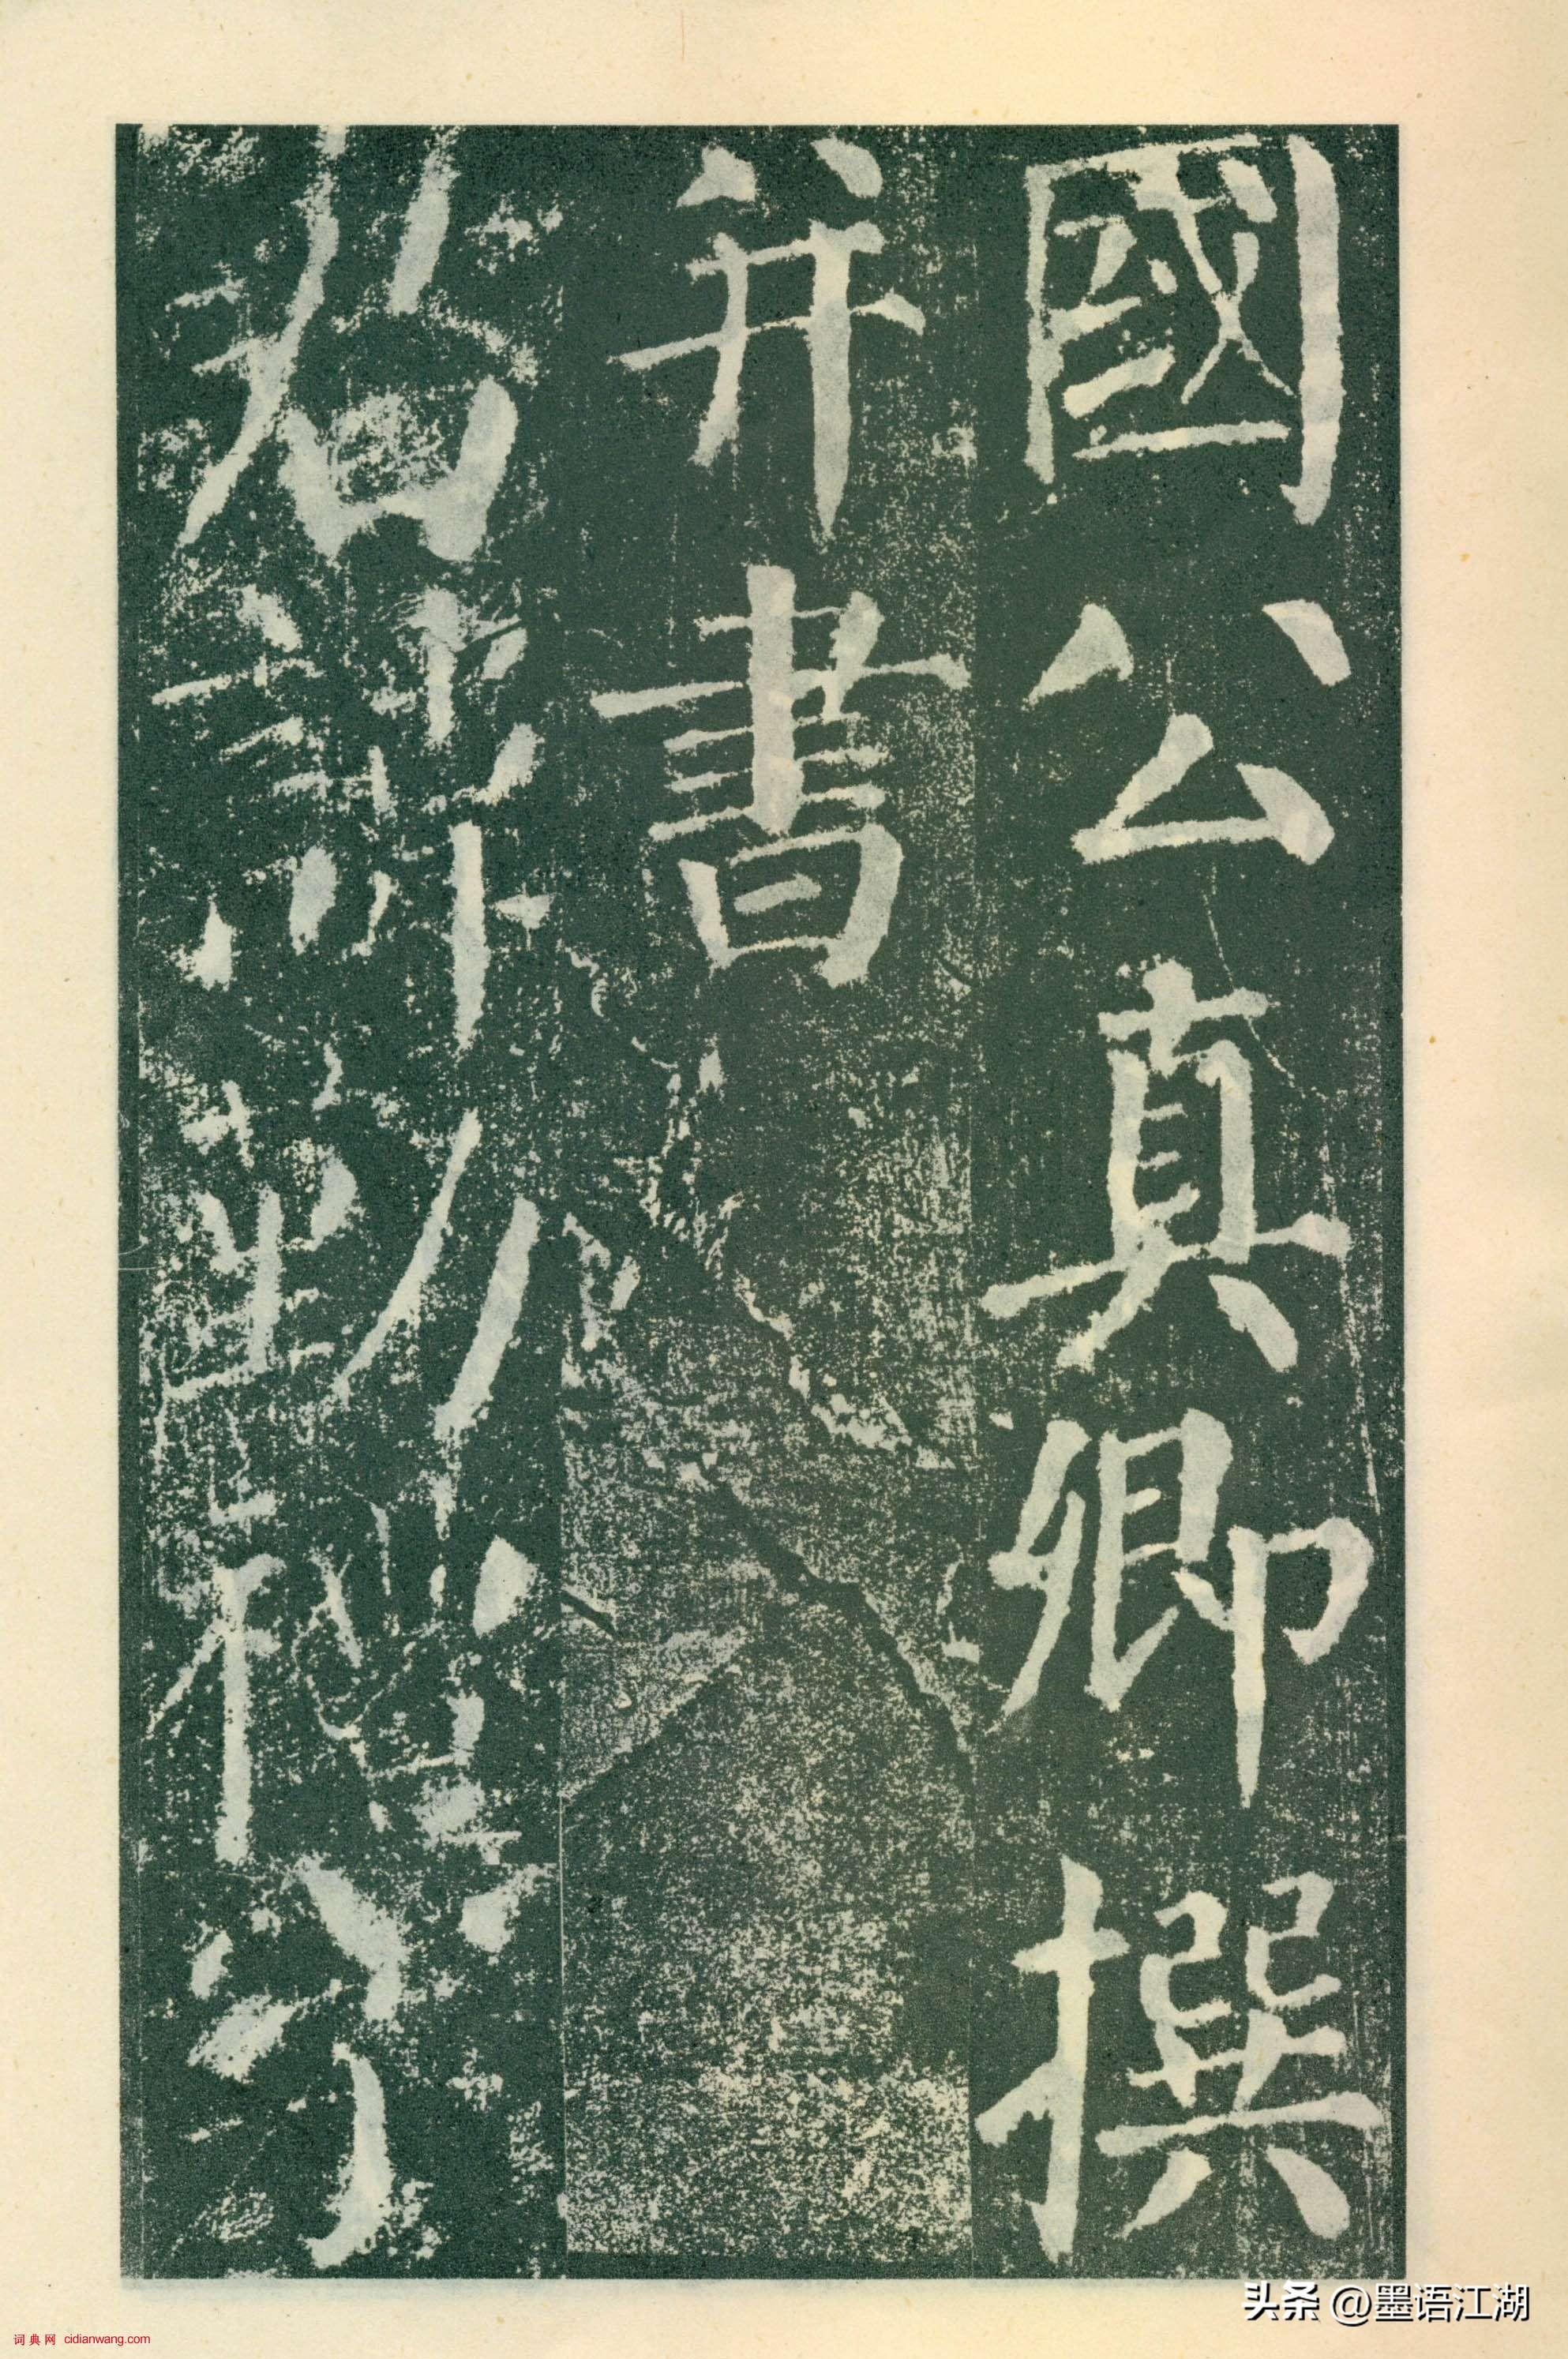 國公真卿撰
并書
君諱勤禮字
头条 @墨语江湖
词典网 cidianwang.com